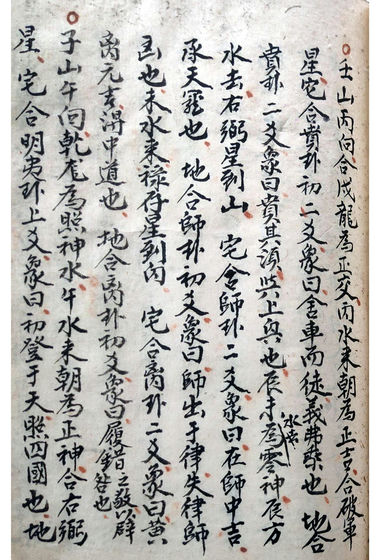 ○壬山丙向合戊龍為正交丙水来朝為正吉合破軍
星宅合賁卦初二爻象曰舍車而徒義弗乘也 地合
賁卦二爻象曰賁其須與上興也辰未為零神辰方
水去右弼星到山 宅合師卦二爻象曰在師中吉
承天寵也 地合師卦初爻象曰師出于律失律師
凶也未水来祿存星到丙 宅合离卦二爻象曰黄
离元吉得中道也 地合离卦初爻象曰履昔之敬以辟咎也
○子山午向乾龙為照神水午水来朝為正神合右弼
星 宅合明夷卦上爻象曰初登于天照四國也地